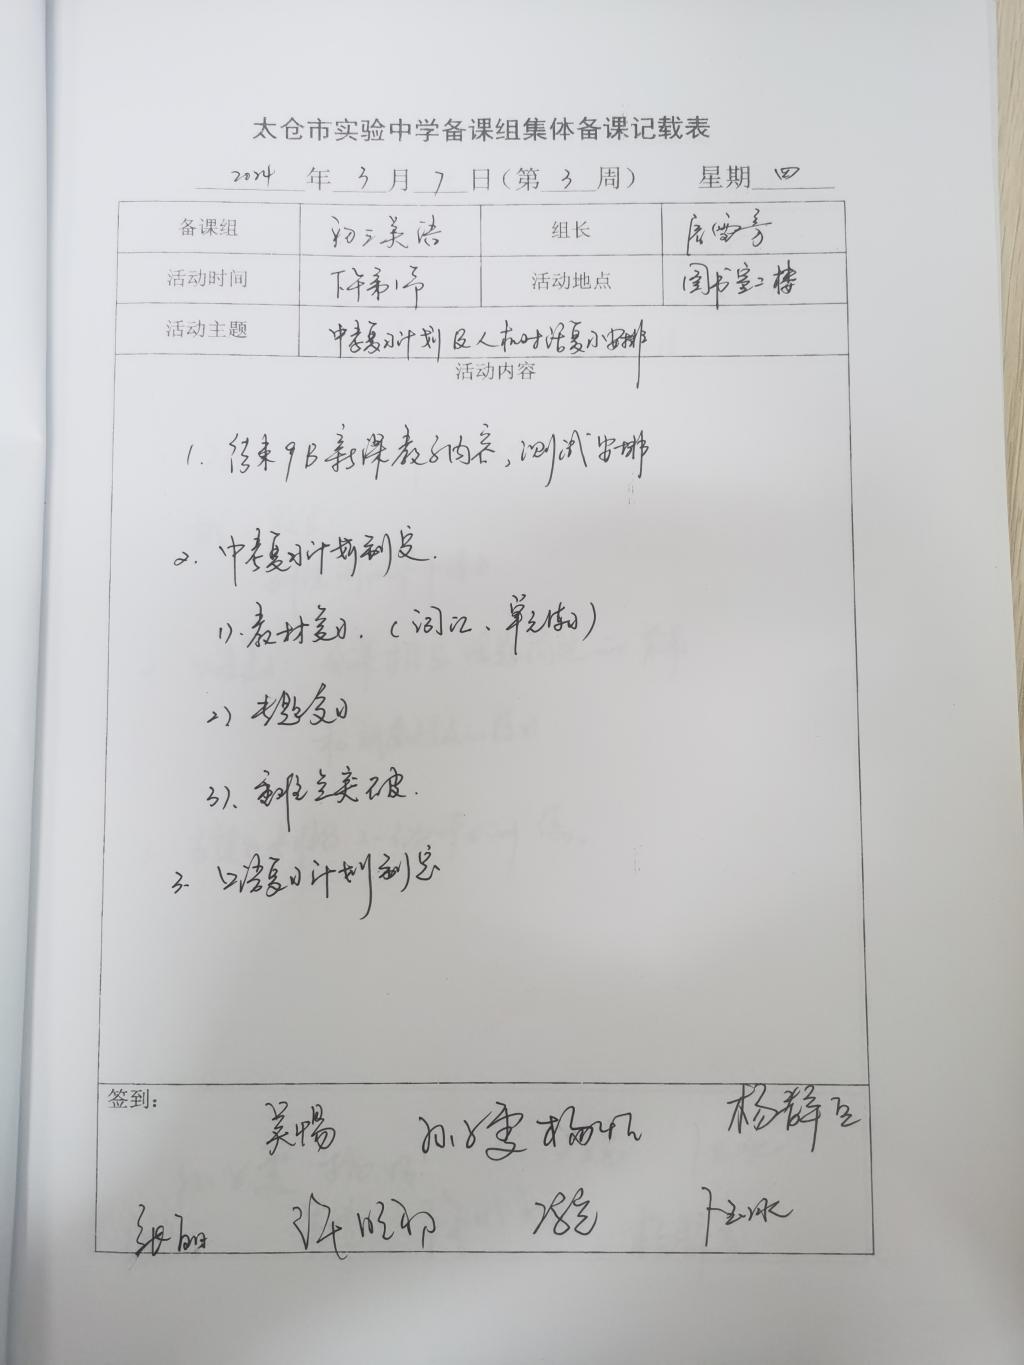 太仓市实验中学备课组集体备课记载表
2024 年 3 月 7 日（第 3 周） 星期 四
备课组 初三英语 组长
活动时间 下午第1节 活动地点 图书室二楼
活动主题 中考复习计划及人机对话复习安排
活动内容
1. 结束9B新课教学内容，测试安排
2. 中考复习计划制定.
1). 教材复习.（词汇、单元复习）
2) 专题复习
3)、重难点突破.
3. 口语复习计划制定
签到：
吴畅
张丽